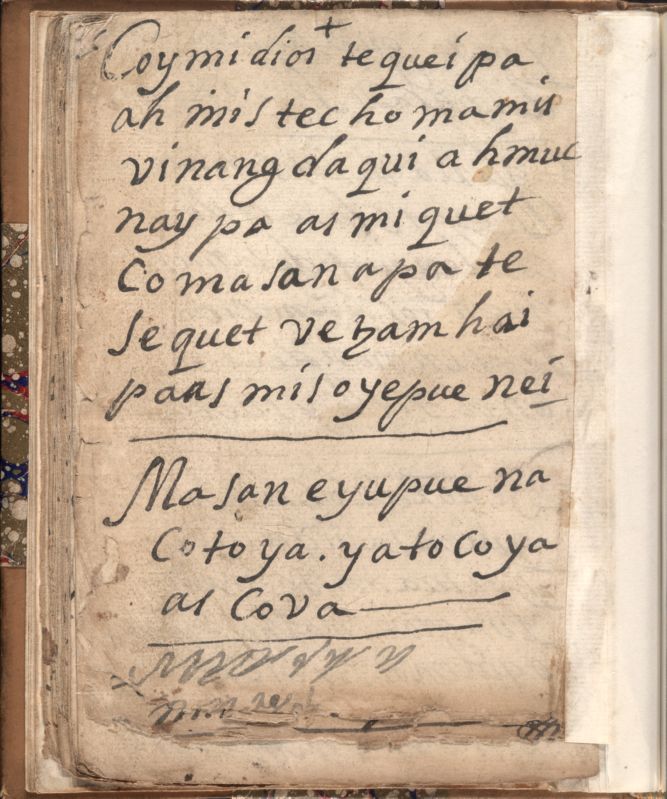 Coymidios + tequeipa
ah mistechomamis
vinang daqui ahmuc
nay pa asmiquet
Comasanapa te
sequet vezamhai
paas misoyepue nei
Masan eyupue na
Cotoya. yatocoya
as Cova